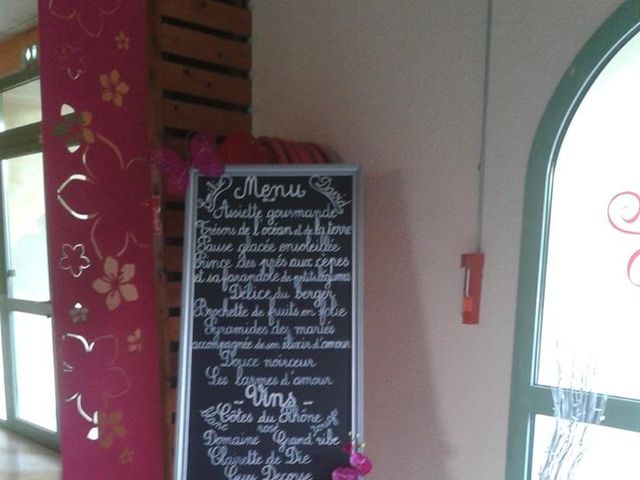 Menu
David
Assiette gourmande
Trésors de l'océan et de la terre
Pause glacée ensoleillée
Prince des prés aux cèpes
et sa farandole de petits légumes
Délice du berger
Brochette de fruits en folie
Pyramides des mariés
accompagnée de son élixir d'amour
Douce noirceur
Les larmes d'amour
- Vins -
Côtes du Rhône
blanc rosé rouge
Domaine Grand'ribe
Clairette de Die